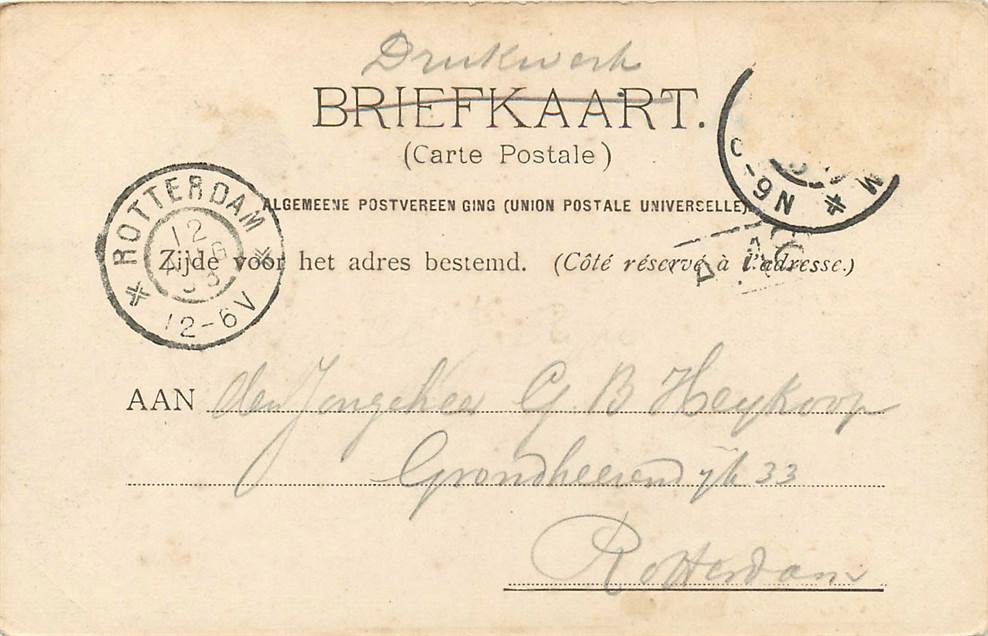 Drukwerk
BRIEFKAART.
(Carte Postale)
ALGEMEENE POSTVEREENGING (UNION POSTALE UNIVERSELLE)
Zijde voor het adres bestemd. (Côté réservé à l'adresse.)
ROTTERDAM
12
12-6V
-9N
AAN den Jongeheer G. B Heykoop
Grondheerendijk 33
Rotterdam